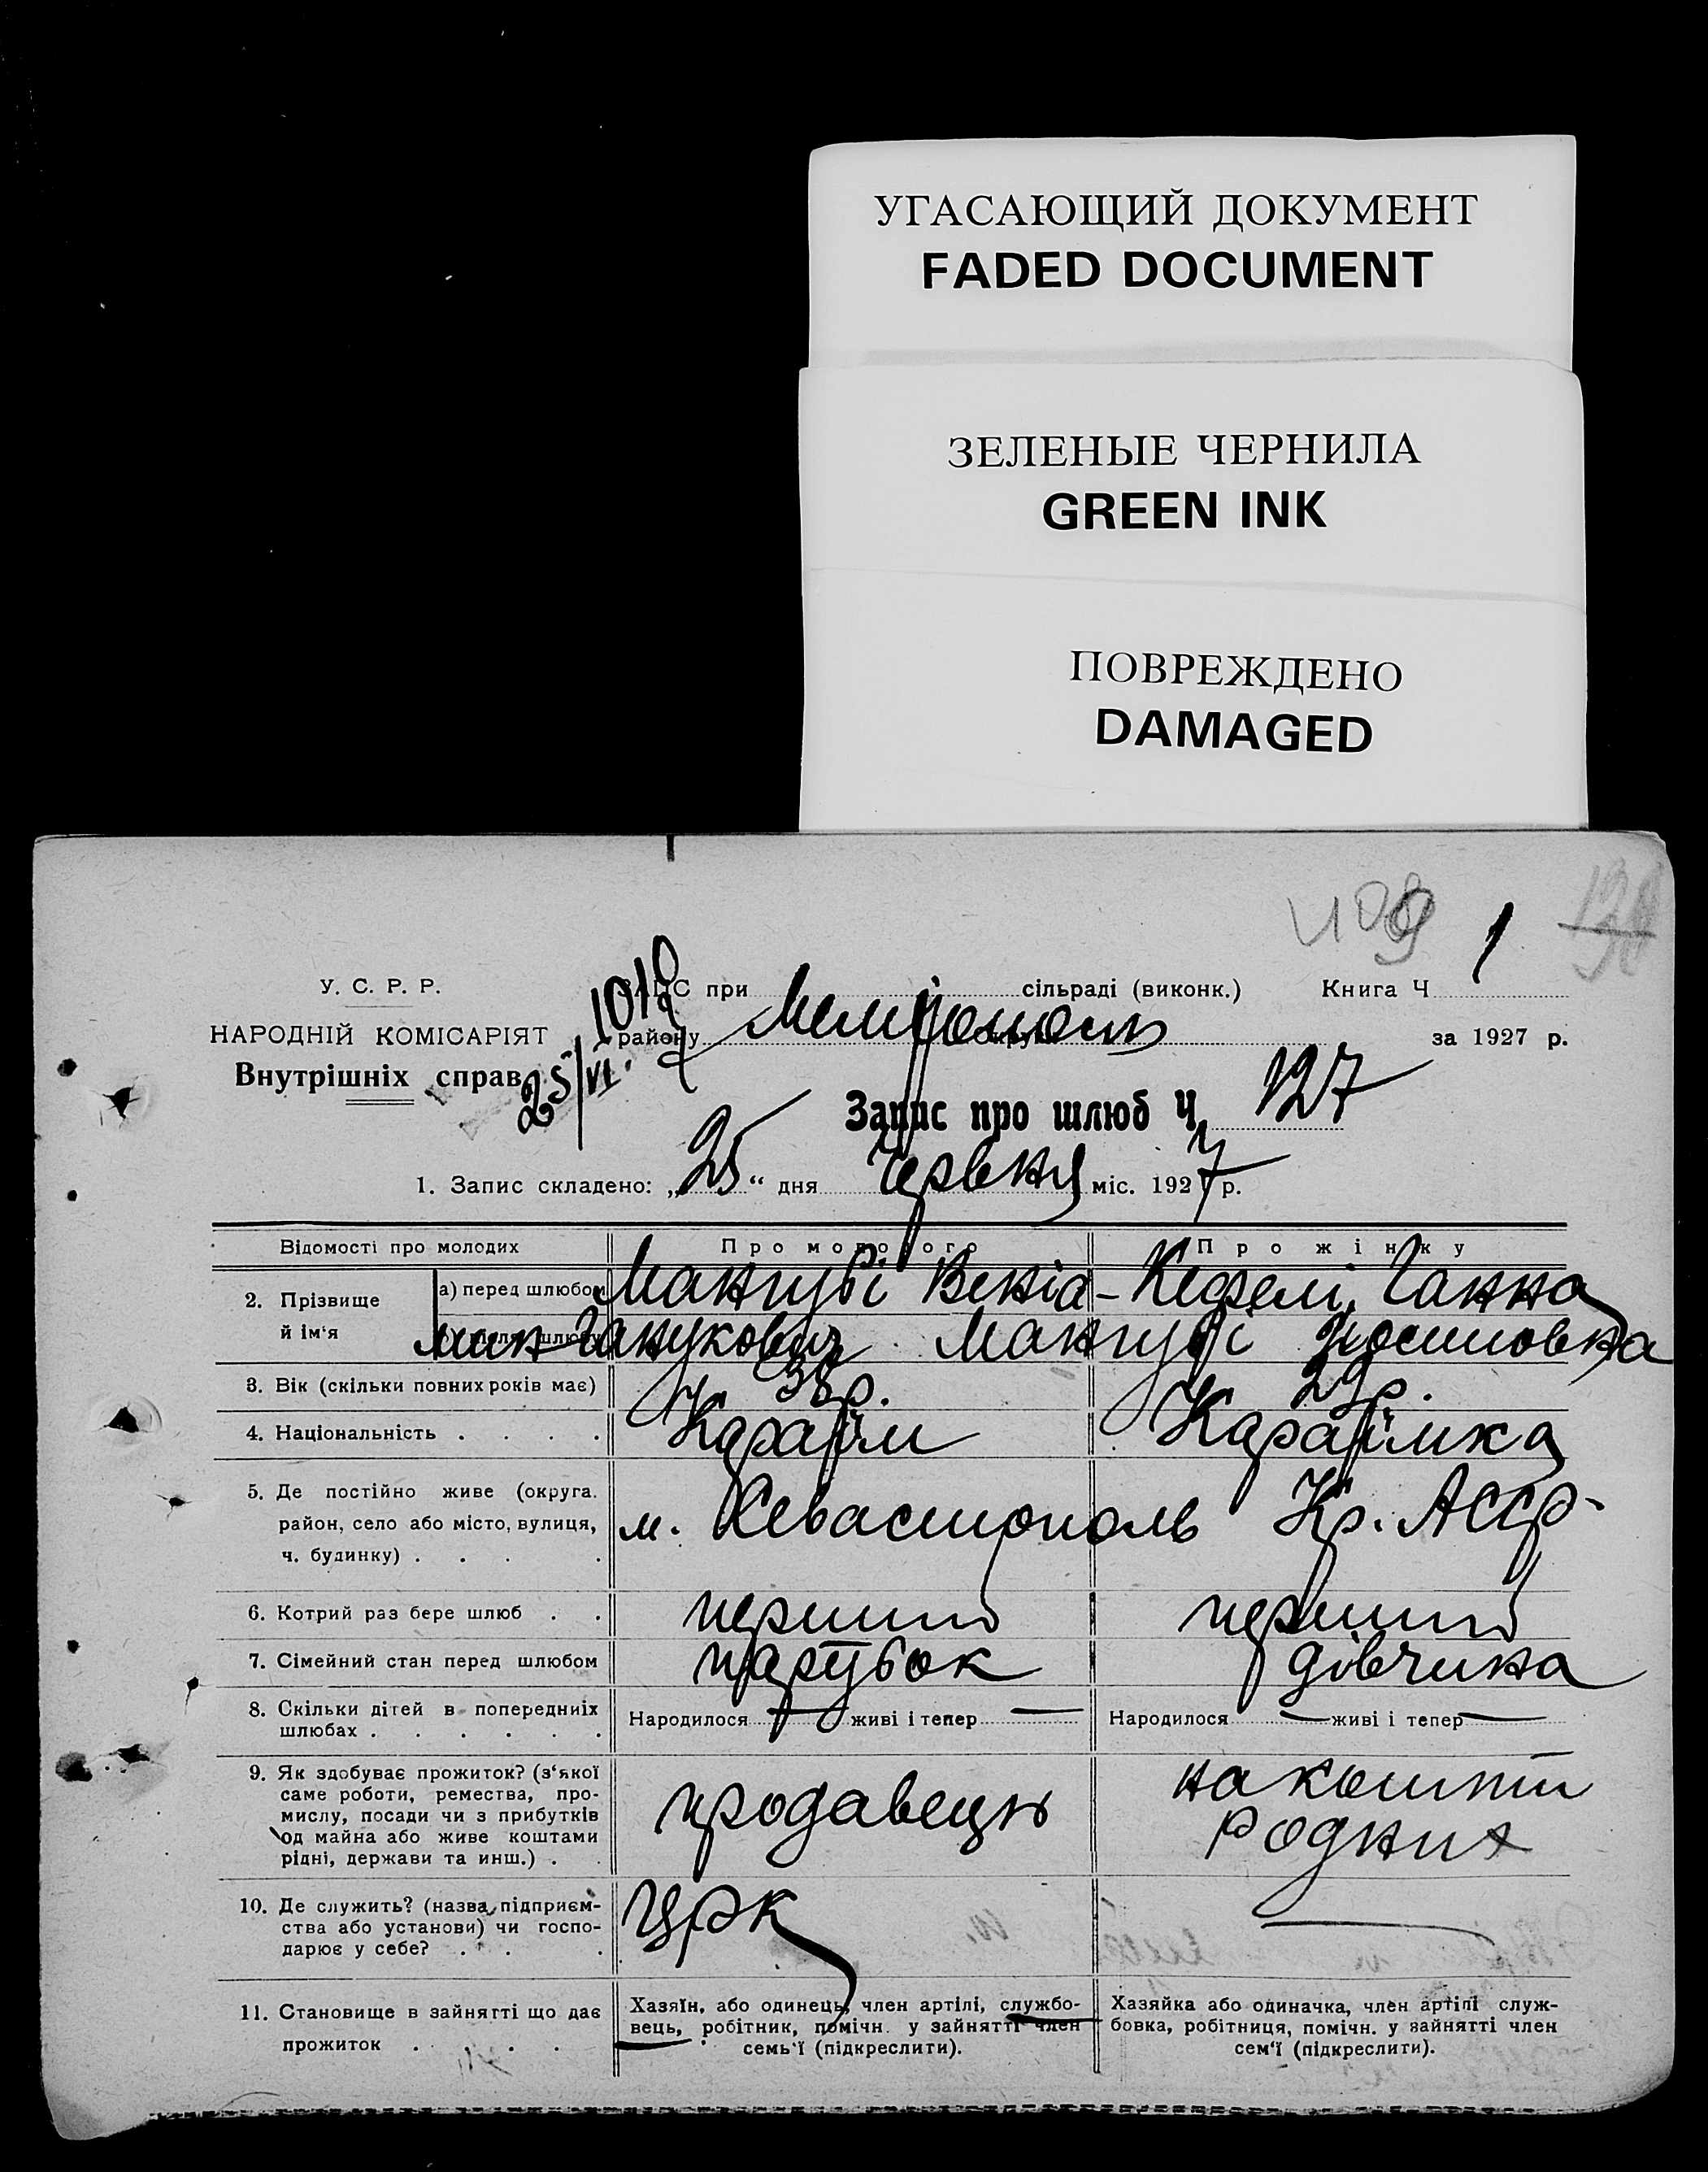 УГАСАЮЩИЙ ДОКУМЕНТ
FADED DOCUMENT
ЗЕЛЕНЫЕ ЧЕРНИЛА
GREEN INK
ПОВРЕЖДЕНО
DAMAGED
109
У. С. Р. Р.
НАРОДНІЙ КОМІСАРІЯТ
Внутрішніх справ
1019
25/VI
ЗАГС при сільраді (виконк.) Книга Ч 1
району Мелітополь округи за 1927 р.
Запис про шлюб Ч. 127
1. Запис складено: „25“ дня Червня міс. 1927 р.
Відомості про молодих
Про молодого
Про жінку
2. Прізвище й ім‘я
а) перед шлюбом
Мангубі Веніа-
мин Ганукович
Кефелі Ганна
Йосиповна
б) після шлюбу
Мангубі
3. Вік (скільки повних років має)
38 р.
29 р.
4. Національність . . . .
Караїм
Караїмка
5. Де постійно живе (округа.
район, село або місто, вулиця,
ч. будинку) . . . .
м. Севастополь Кр. АССР
6. Котрий раз бере шлюб . .
перший
перший
7. Сімейний стан перед шлюбом
парубок
дівчина
8. Скільки дітей в попередніх
шлюбах . . . . . .
Народилося — живі і тепер —
Народилося — живі і тепер —
9. Як здобуває прожиток? (з‘якої
саме роботи, ремества, про-
мислу, посади чи з прибутків
од майна або живе коштами
рідні, держави та инш.) . .
продавець
на кошти
родних
10. Де служить? (назва підприєм-
ства або установи) чи госпо-
дарює у себе? . . . .
ЦРК
—
11. Становище в зайнятті що дає
прожиток . . . .
Хазяїн, або одинець, член артілі, службо-
вець, робітник, помічн. у зайнятті член
семь‘ї (підкреслити).
Хазяйка або одиначка, член артілі служ-
бовка, робітниця, помічн. у зайнятті член
сем‘ї (підкреслити).